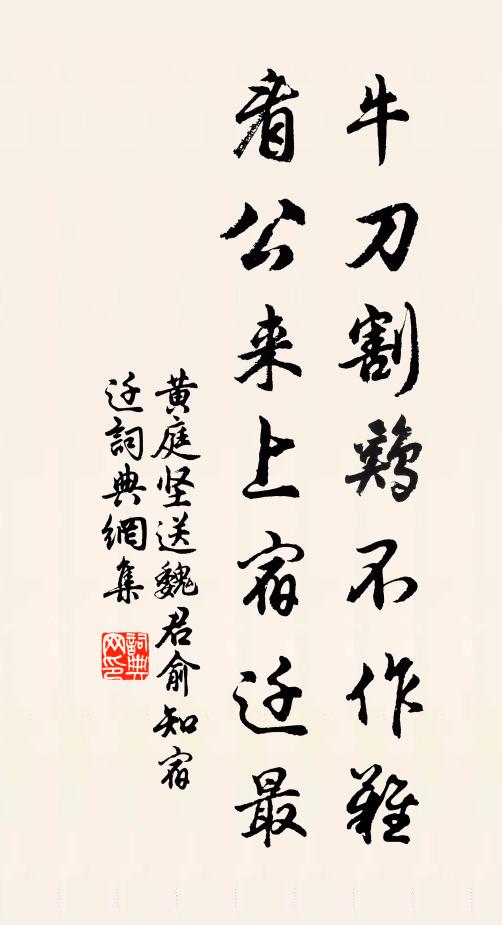 牛刀割鷄不作難
看公来上宿迁最
黄庭坚送魏君俞知宿
迁詞典網集
詞典网印